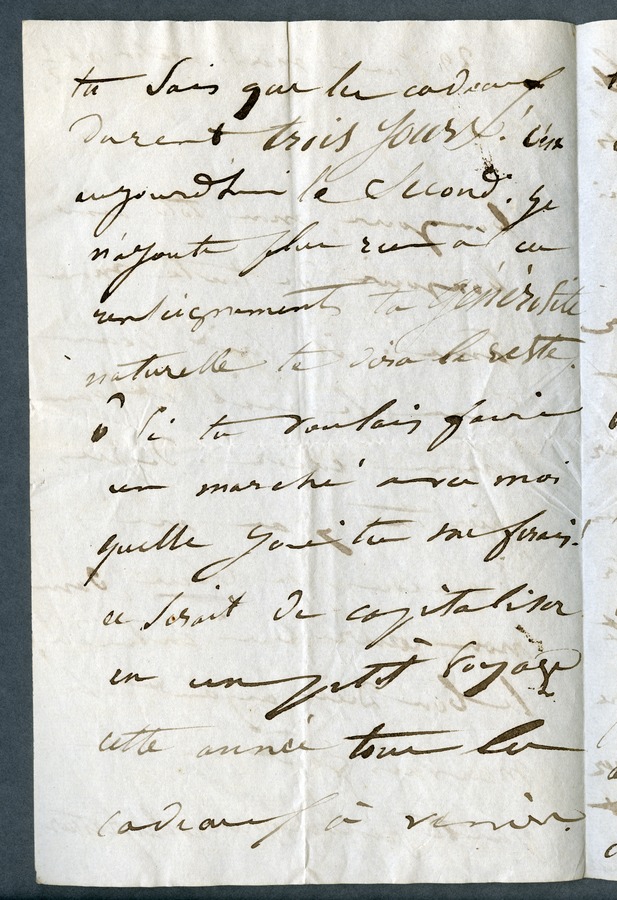 tu sais que les cadeaux
durent trois jours! c'est
aujourd'hui le second. je
n'ajoute plus rien à ces
renseignements ta générosité
naturelle te dira le reste.
ô si tu voulais faire
un marché avec moi
quelle joie tu me ferais!
ce serait de capitaliser
en un petit voyage
cette année tous les
cadeaux à venir.